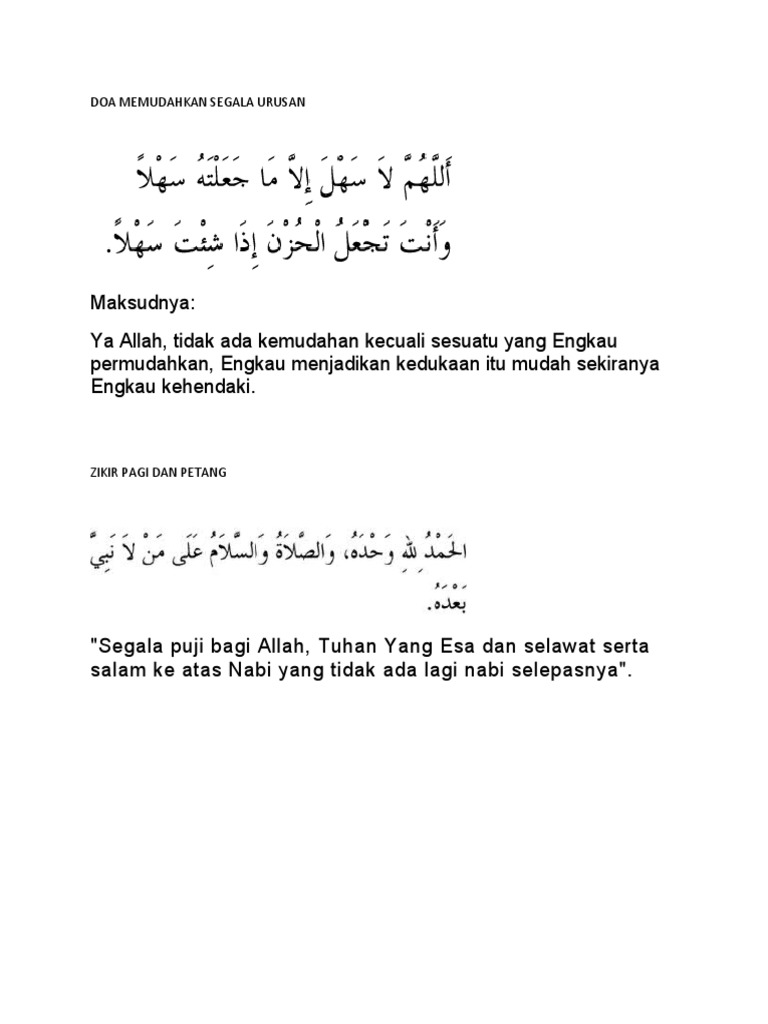 DOA MEMUDAHKAN SEGALA URUSAN
أَللَّهُمَّ لاَ سَهْلَ إِلاَّ مَا جَعَلْتَهُ سَهْلاً
وَأَنْتَ تَجْعَلُ الْحُزْنَ إِذَا شِئْتَ سَهْلاً.
Maksudnya:
Ya Allah, tidak ada kemudahan kecuali sesuatu yang Engkau
permudahkan, Engkau menjadikan kedukaan itu mudah sekiranya
Engkau kehendaki.
ZIKIR PAGI DAN PETANG
الحَمْدُ لِلهِ وَحْدَهُ، وَالصَّلاَةُ وَالسَّلاَمُ عَلَى مَنْ لاَ نَبِيَّ
بَعْدَهُ.
"Segala puji bagi Allah, Tuhan Yang Esa dan selawat serta
salam ke atas Nabi yang tidak ada lagi nabi selepasnya".